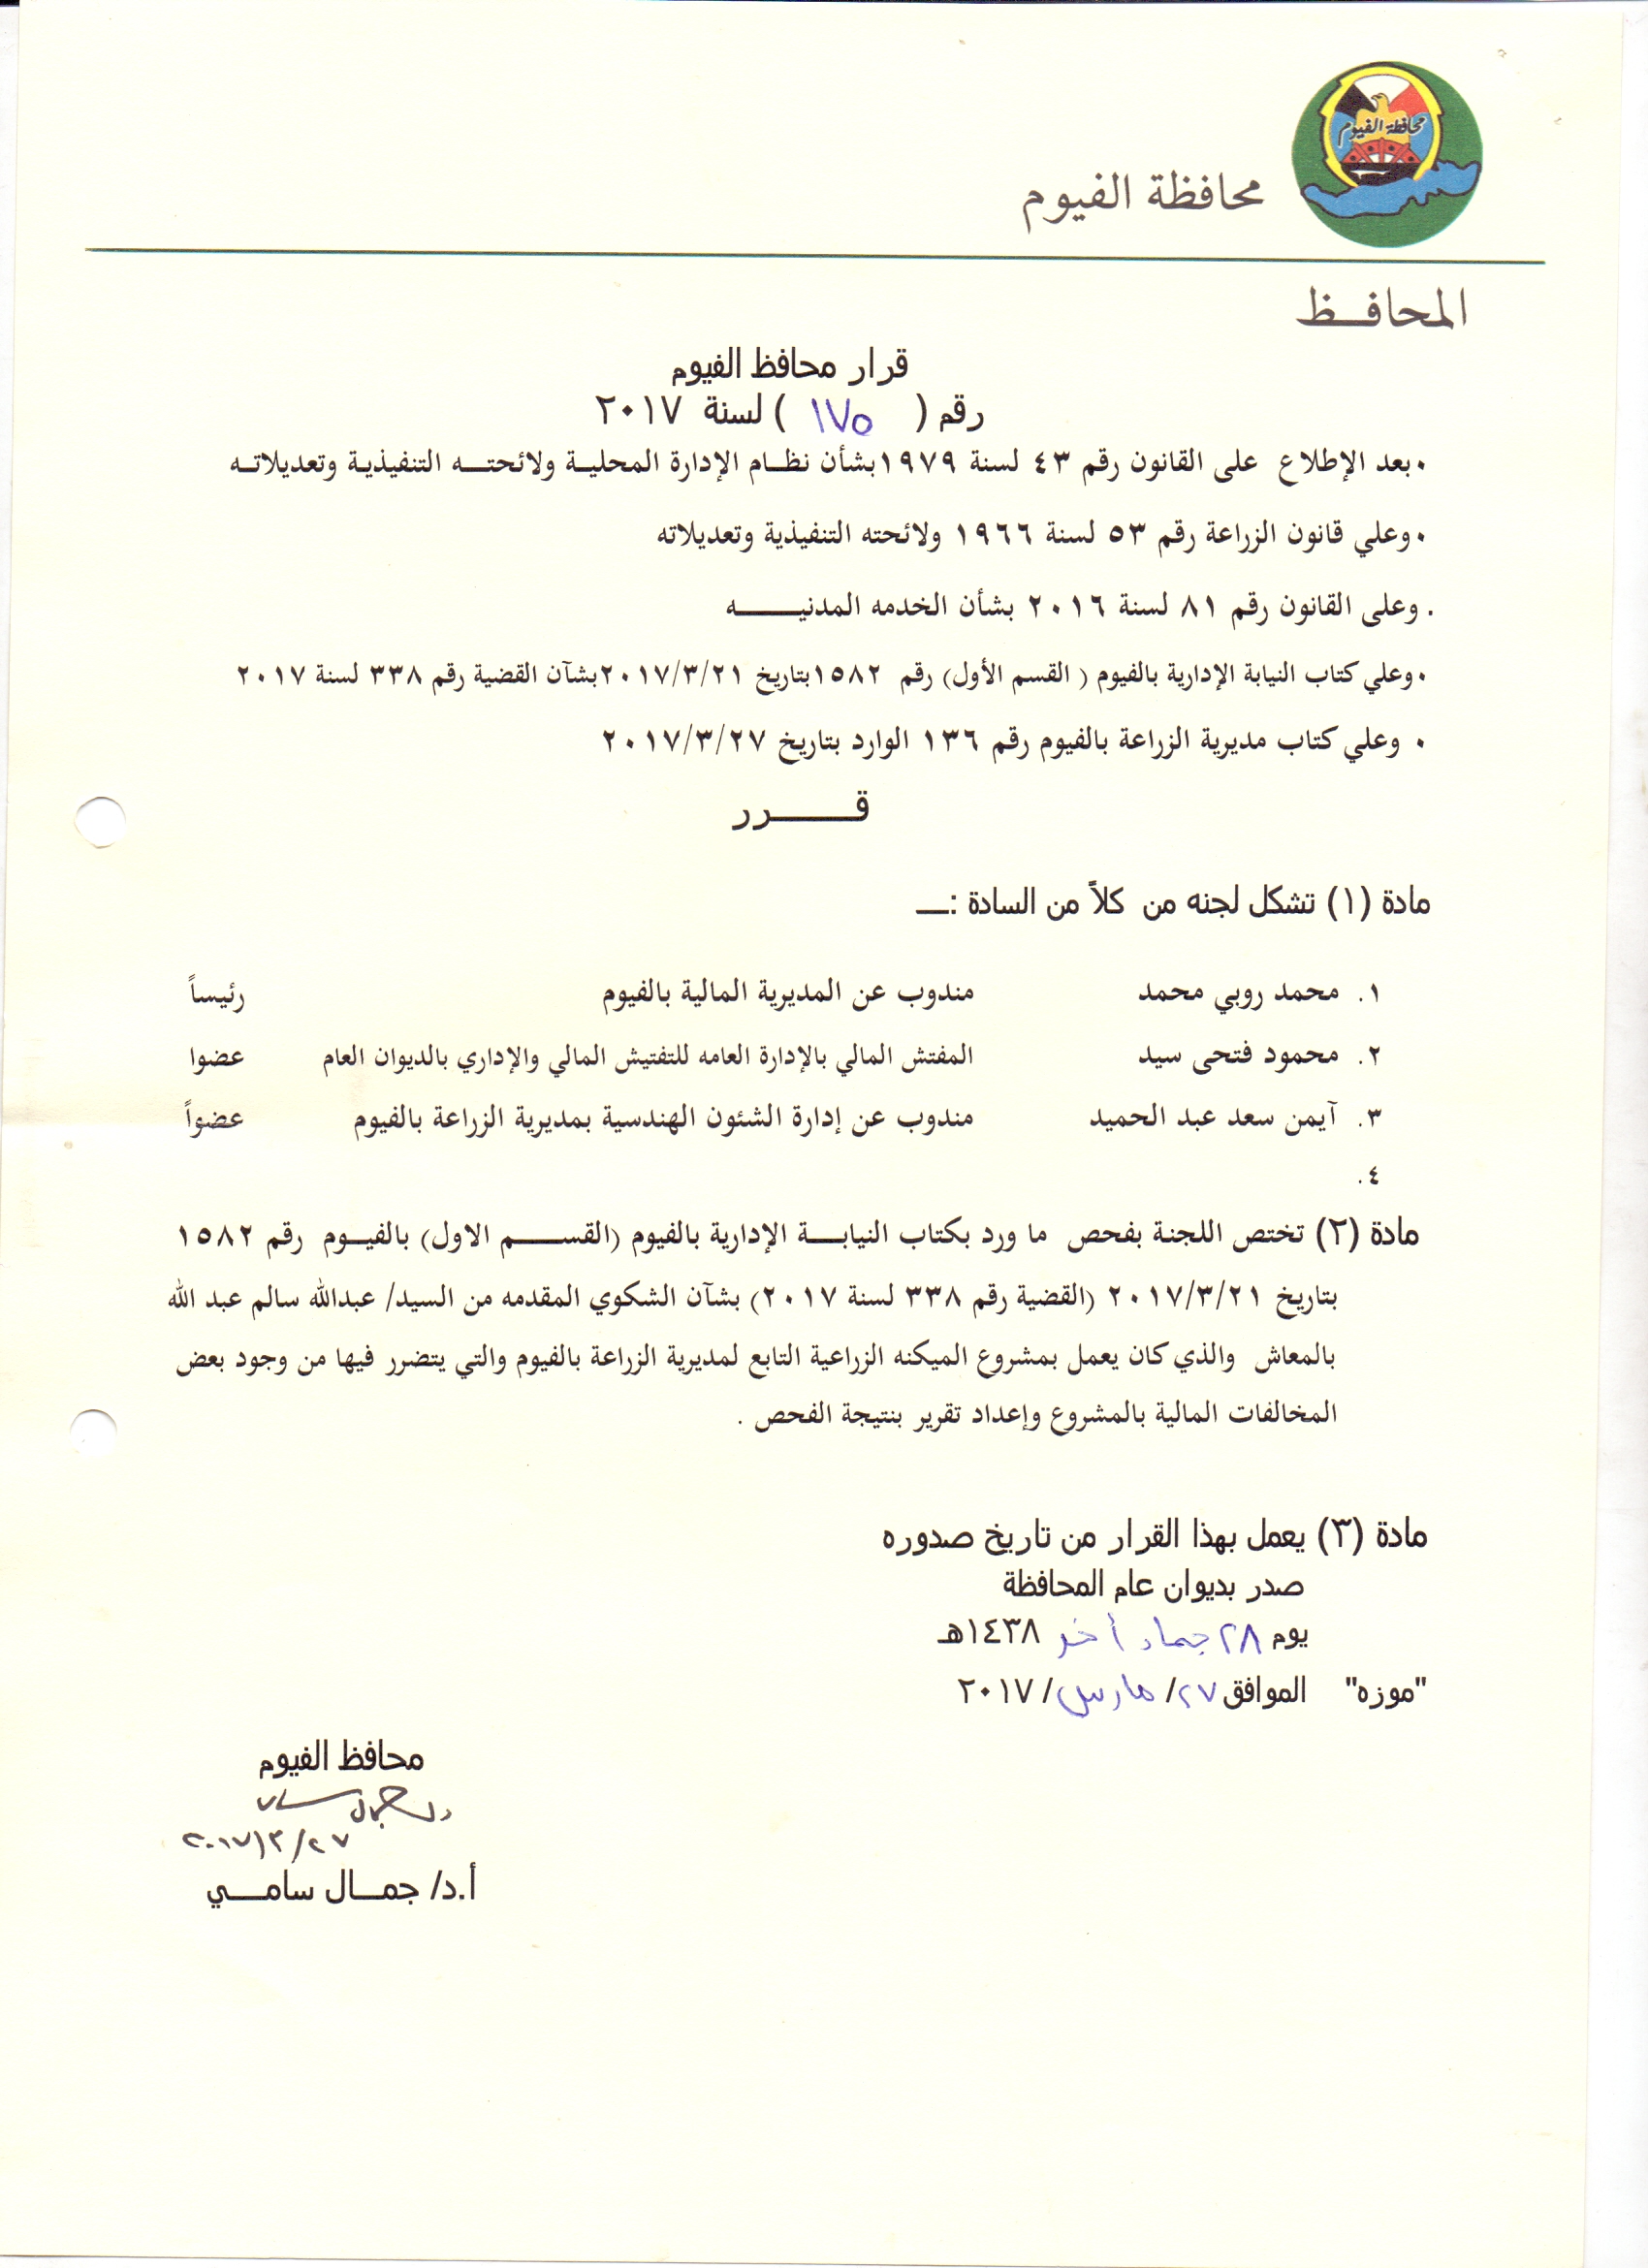 محافظة الفيوم
محافظة الفيوم
المحافـــظ
قرار محافظ الفيوم
رقم ( ١٧٥ ) لسنة ٢٠١٧
• بعد الإطلاع على القانون رقم ٤٣ لسنة ١٩٧٩ بشأن نظـام الإدارة المحليـة ولائحتـــه التنفيذيـة وتعديلاتـه
• وعلي قانون الزراعة رقم ٥٣ لسنة ١٩٦٦ ولائحته التنفيذية وتعديلاته
. وعلى القانون رقم ٨١ لسنة ٢٠١٦ بشأن الخدمه المدنيــــــه
• وعلي كتاب النيابة الإدارية بالفيوم ( القسم الأول) رقم ١٥٨٢ بتاريخ ٢٠١٧/٣/٢١ بشآن القضية رقم ٣٣٨ لسنة ٢٠١٧
• وعلي كتاب مديرية الزراعة بالفيوم رقم ١٣٦ الوارد بتاريخ ٢٠١٧/٣/٢٧
قــــــرر
مادة (١) تشكل لجنه من كلاً من السادة :ـــ
١. محمد روبي محمد مندوب عن المديرية المالية بالفيوم رئيساً
٢. محمود فتحى سيد المفتش المالي بالإدارة العامه للتفتيش المالي والإداري بالديوان العام عضوا
٣. آيمن سعد عبد الحميد مندوب عن إدارة الشئون الهندسية بمديرية الزراعة بالفيوم عضواً
٤.
مادة (٢) تختص اللجنة بفحص ما ورد بكتاب النيابـــة الإدارية بالفيوم (القســــم الاول) بالفيـــوم رقم ١٥٨٢
بتاريخ ٢٠١٧/٣/٢١ (القضية رقم ٣٣٨ لسنة ٢٠١٧) بشآن الشكوي المقدمه من السيد/ عبدالله سالم عبد الله
بالمعاش والذي كان يعمل بمشروع الميكنه الزراعية التابع لمديرية الزراعة بالفيوم والتي يتضرر فيها من وجود بعض
المخالفات المالية بالمشروع وإعداد تقرير بنتيجة الفحص .
مادة (٣) يعمل بهذا القرار من تاريخ صدوره
صدر بديوان عام المحافظة
يوم ٢٨ جماد أخر ١٤٣٨هـ
"موزه" الموافق ٢٧/ مارس/ ٢٠١٧
محافظ الفيوم
٢٠١٧/٣/٢٧
أ.د/ جمـــال سامـــي